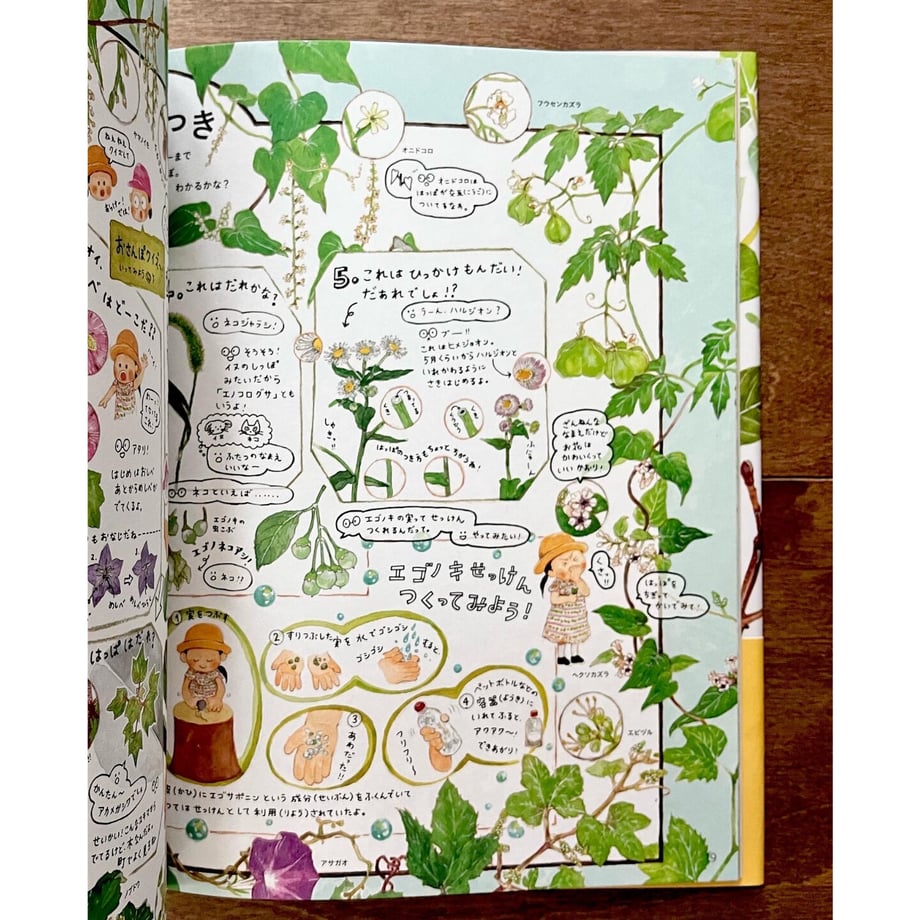 ヤマノイモ
ねえねえ
クイズして
おっけー！
では！
おさんぽクイズ
いってみよう
べはどーこだ??
アタリ！
はじめはおしべ
あとからめしべが
でてくるよ。
もおなじだね
2.
3.
めしべ
おしべ
はっぱはだれ？
かんたん〜
アカメガシワでしょ
せいかい！
町でよく見
ノブドウ
つき
ーまで
ぽ。
わかるかな？
オニドコロ
フウセンカズラ
オニドコロは
はっぱが互互(ごご)に
ついてるなあ。
これはだれかな？
ネコジャラシ！
そうそう！
イヌのしっぽ
みたいだから
「エノコログサ」とも
いうよ！
イヌ
ネコ
ふたつのなまえ
いいなー
ネコといえば……
エゴノキの
虫こぶ
エゴノネコアシ！
ネコ!?
5。これは ひっかけ もんだい！
だあれでしょ!?
うーん、ハルジオン？
ブー!!
これはヒメジョオン。
5月くらいからハルジオンと
いれかわるように
さきはじめるよ。
しゃきっ!!
ふにゃーん
はっぱのつき方もちょっとちがうね！
エゴノキの実って せっけん
つくれるんだって。
やってみたい！
エゴノキせっけん
つくってみよう！
ざんねんな
なまえだけど
お花は
かわいくって
いいかおり！
くさっ!!
はっぱを
ちぎって
かいでみて！
ヘクソカズラ
エビヅル
① 実をつぶす
② すりつぶした実を 水でゴシゴシ
ゴシゴシ
すると、
③
あわだった!!
④
ペットボトルなどの
容器(ようき)に
いれてふると、
アワアワ〜！
できあがり！
フリフリ〜
皮(かひ)にエゴサポニンという 成分(せいぶん)をふくんでいて
つては せっけんとして 利用(りよう)されていたよ。
アサガオ